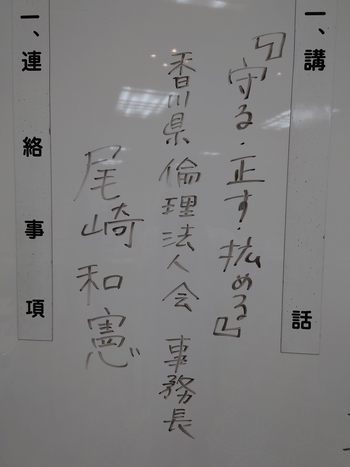 一、講話
『守る・正す・拡める』
香川県倫理法人会 事務長
尾崎和憲
一、連絡事項